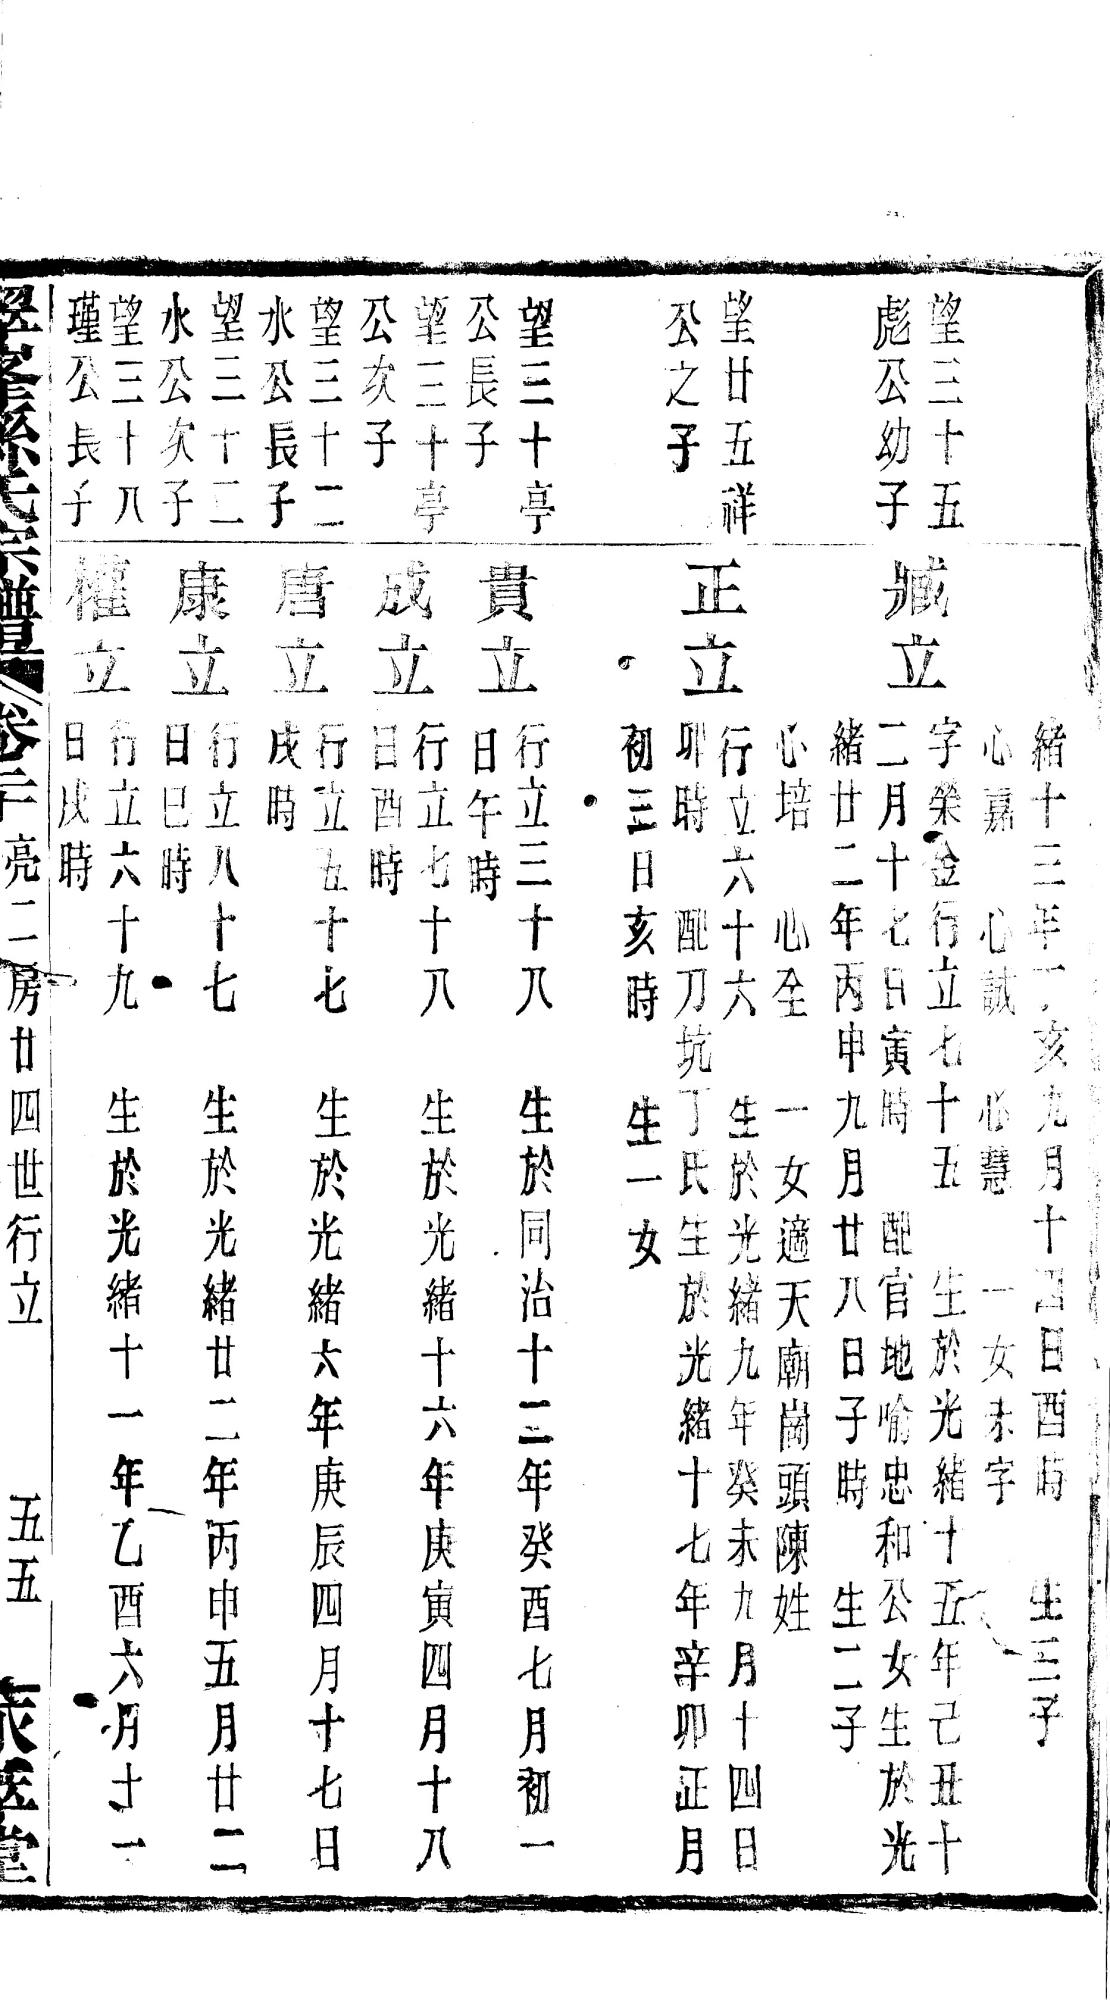 緒十三年丁亥九月十四日酉時　生三子
心嘉　心誠　心慧　一女未字
望三十五
彪公幼子
臧立
字榮金行立七十五　生於光緒十五年己丑十
二月十七日寅時　配官地喻忠和公女生於光
緒廿二年丙申九月廿八日子時　生二子
心培　心全　一女適天廟崗頭陳姓
望廿五祥
公之子
正立
行立六十六　生於光緒九年癸未九月十四日
卯時　配刀坑丁氏生於光緒十七年辛卯正月
初三日亥時　生一女
望三十亭
公長子
貴立
行立三十八　生於同治十二年癸酉七月初一
日午時
望三十亭
公次子
成立
行立七十八　生於光緒十六年庚寅四月十八
日酉時
望三十二
水公長子
唐立
行立五十七　生於光緒六年庚辰四月十七日
戌時
望三十二
水公次子
康立
行立八十七　生於光緒廿二年丙申五月廿二
日巳時
望三十八
瑾公長子
權立
行立六十九　生於光緒十一年乙酉六月十一
日戌時
孫氏宗譜　卷二　亮二房廿四世行立　五五　堂